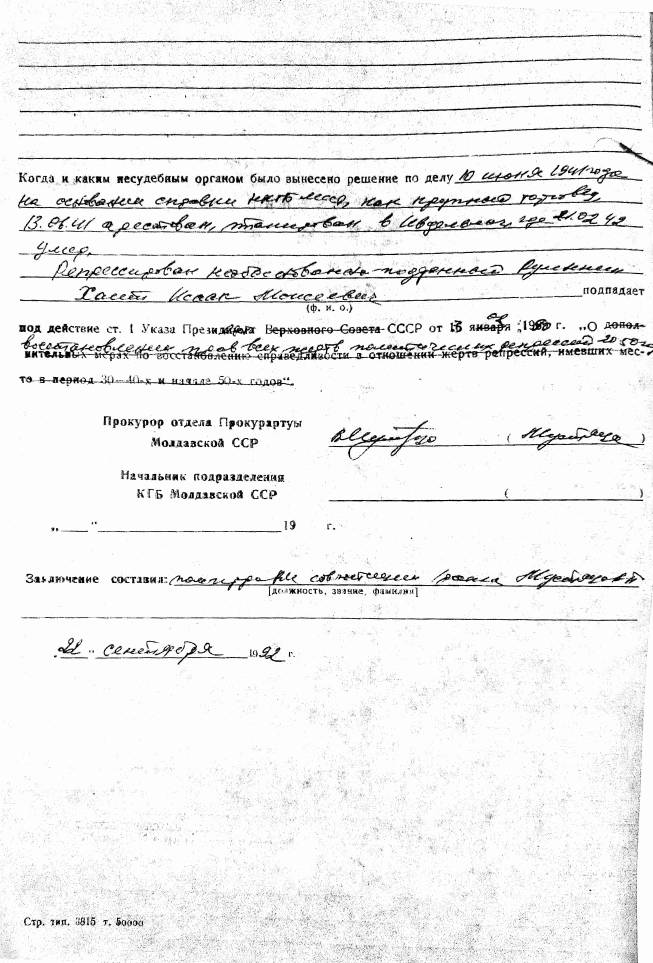 Когда и каким несудебным органом было вынесено решение по делу 10 июня 1941 года
на основании справки НКГБ МССР, как крупный торговец
13.06.41 арестован, этапирован в Ивдельлаг, где 21.02.42
умер.
Репрессирован необоснованно подданный Румынии
Исаак Моисеевич подпадает
(ф. и. о.)
под действие ст. 1 Указа Президента Верховного Совета СССР от 13 января 19 г. „О допол-
восстановлении прав всех жертв политических репрессий 20 50-х
нительных мерах по восстановлению справедливости в отношении жертв репрессий, имевших мес-
то в период 30—40-х и начале 50-х годов".
Прокурор отдела Прокурартуы
Молдавской ССР
( )
Начальник подразделения
КГБ Молдавской ССР
( )
„ " 19 г.
Заключение составил:
[должность, звание, фамилия]
22 " сентября 1992 г.
Стр. тип. 3815 т. 50000